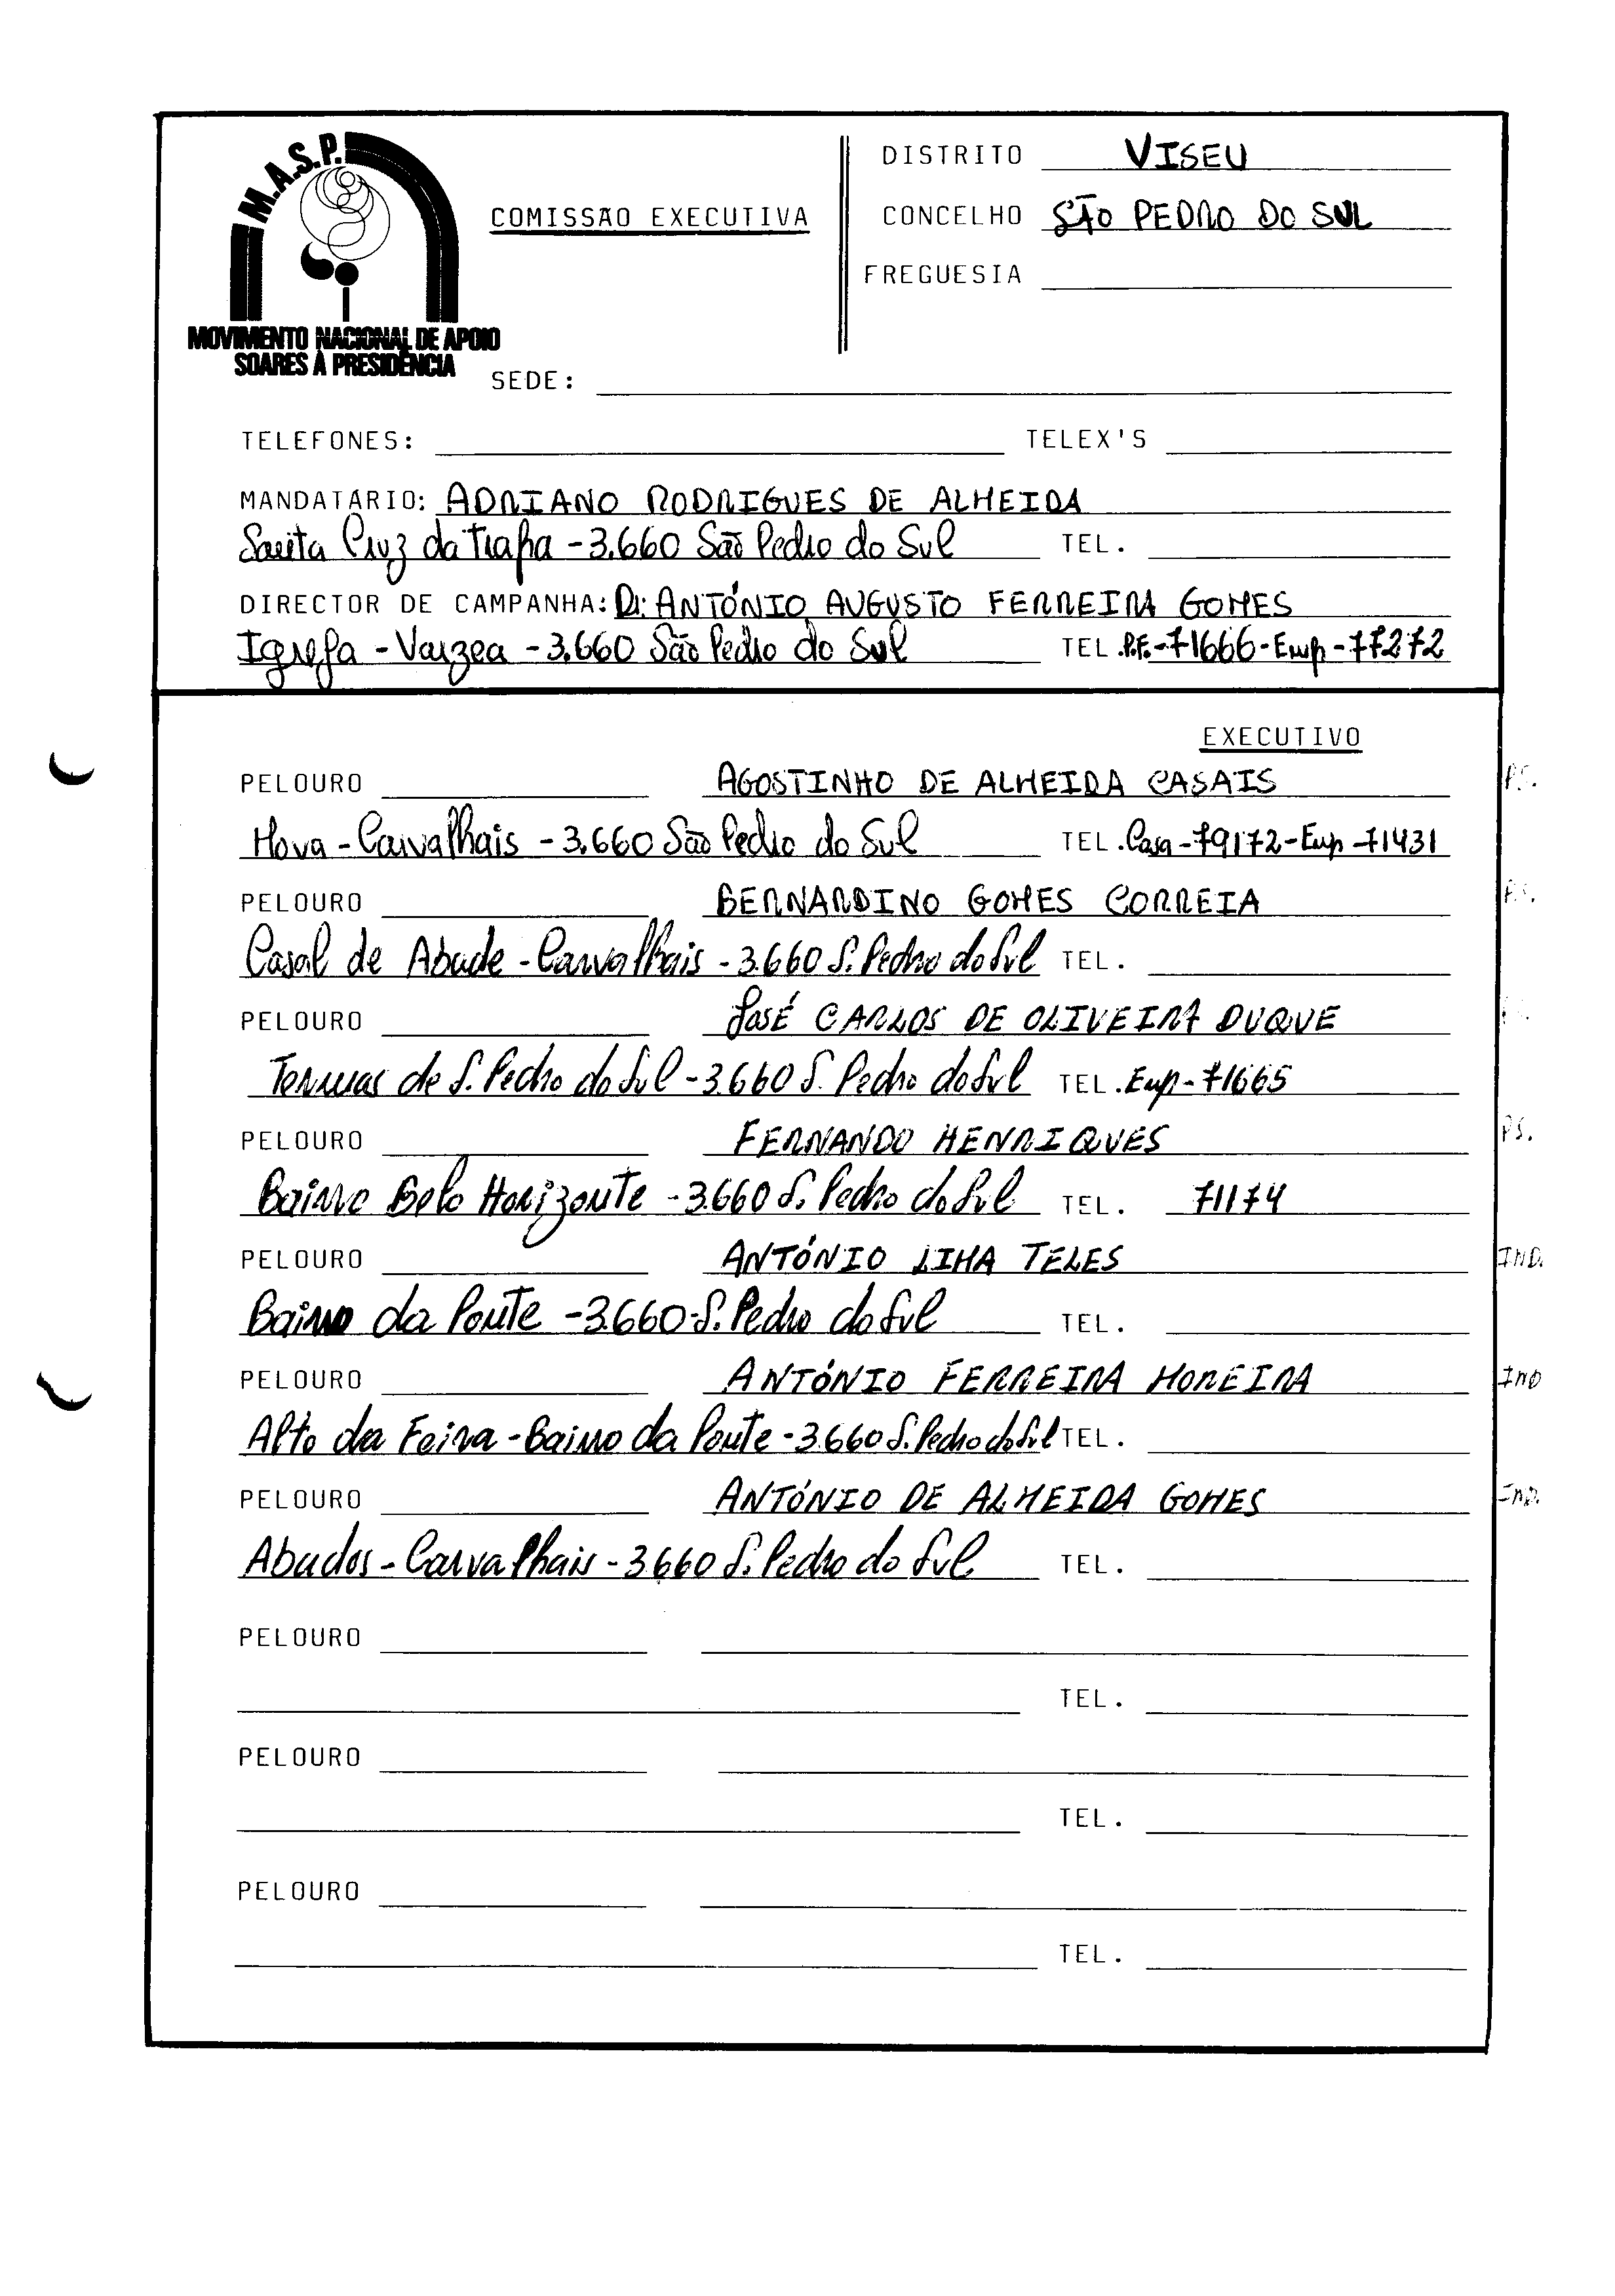 M.A.S.P.
MOVIMENTO NACIONAL DE APOIO
SOARES À PRESIDÊNCIA
COMISSÃO EXECUTIVA
DISTRITO VISEU
CONCELHO SÃO PEDRO DO SUL
FREGUESIA
SEDE:
TELEFONES: TELEX'S
MANDATÁRIO: ADRIANO RODRIGUES DE ALMEIDA
Santa Cruz da Trapa - 3.660 São Pedro do Sul TEL.
DIRECTOR DE CAMPANHA: Dr. ANTÓNIO AUGUSTO FERREIRA GOMES
Igreja - Varzea - 3.660 São Pedro do Sul TEL. P.F. - 71666 - Emp - 77272
EXECUTIVO
PELOURO AGOSTINHO DE ALMEIDA CASAIS P.S.
Mova - Carvalhais - 3.660 São Pedro do Sul TEL. Casa - 79172 - Emp - 71431
PELOURO BERNARDINO GOMES CORREIA P.S.
Casal de Abade - Carvalhais - 3.660 S. Pedro do Sul TEL.
PELOURO JOSÉ CARLOS DE OLIVEIRA DUQUE
Termas de S. Pedro do Sul - 3.660 S. Pedro do Sul TEL. Emp - 71665
PELOURO FERNANDO HENRIQUES P.S.
Bairro Belo Horizonte - 3.660 S. Pedro do Sul TEL. 71174
PELOURO ANTÓNIO LIMA TELES IND.
Bairro da Ponte - 3.660 - S. Pedro do Sul TEL.
PELOURO ANTÓNIO FERREIRA MOREIRA IND
Alto da Feira - Bairro da Ponte - 3.660 S. Pedro do Sul TEL.
PELOURO ANTÓNIO DE ALMEIDA GOMES IND.
Abados - Carvalhais - 3.660 S. Pedro do Sul TEL.
PELOURO
TEL.
PELOURO
TEL.
PELOURO
TEL.